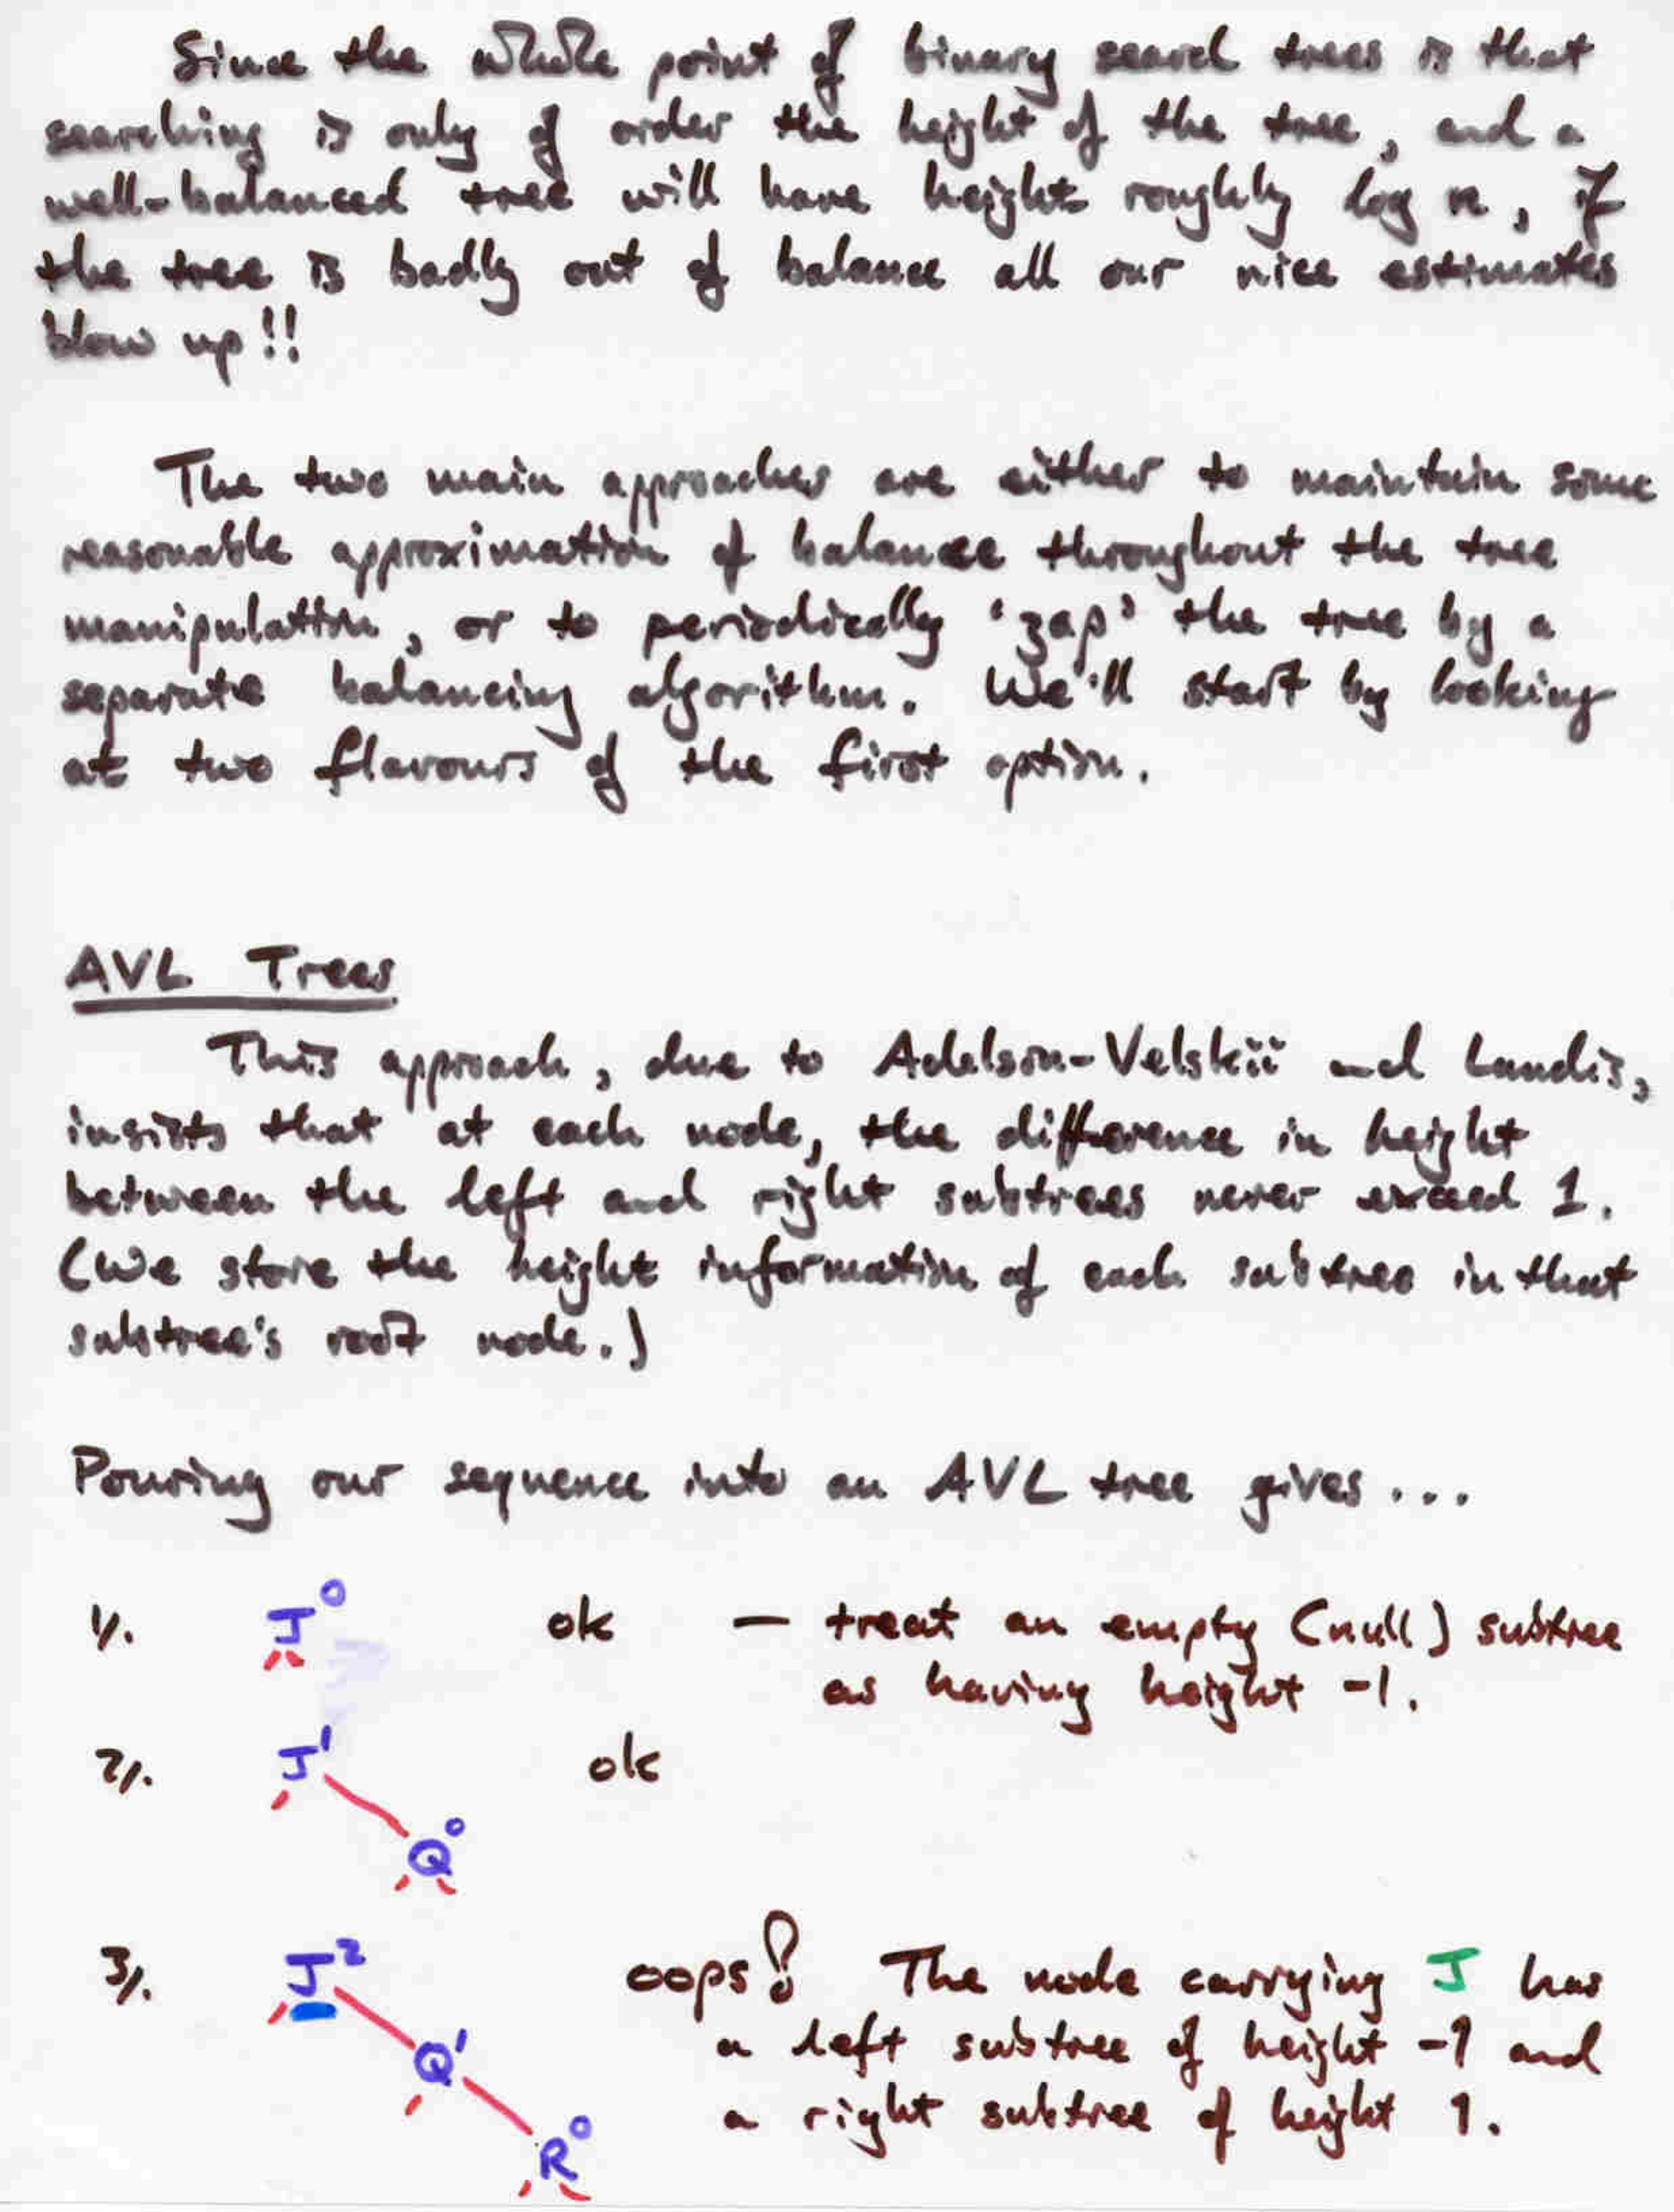 Since the whole point of binary search trees is that
searching is only of order the height of the tree, and a
well-balanced tree will have height roughly log n, if
the tree is badly out of balance all our nice estimates
blow up!!
The two main approaches are either to maintain some
reasonable approximation of balance throughout the tree
manipulation, or to periodically 'zap' the tree by a
separate balancing algorithm. We'll start by looking
at two flavours of the first option.
AVL Trees
This approach, due to Adelson-Velskii and Landis,
insists that at each node, the difference in height
between the left and right subtrees never exceed 1.
(We store the height information of each subtree in that
subtree's root node.)
Pouring our sequence into an AVL tree gives...
1/. J⁰ ok — treat an empty (null) subtree
as having height -1.
2/. J¹ ok
Q⁰
3/. J² oops! The node carrying J has
a left subtree of height -1 and
Q¹
a right subtree of height 1.
R⁰